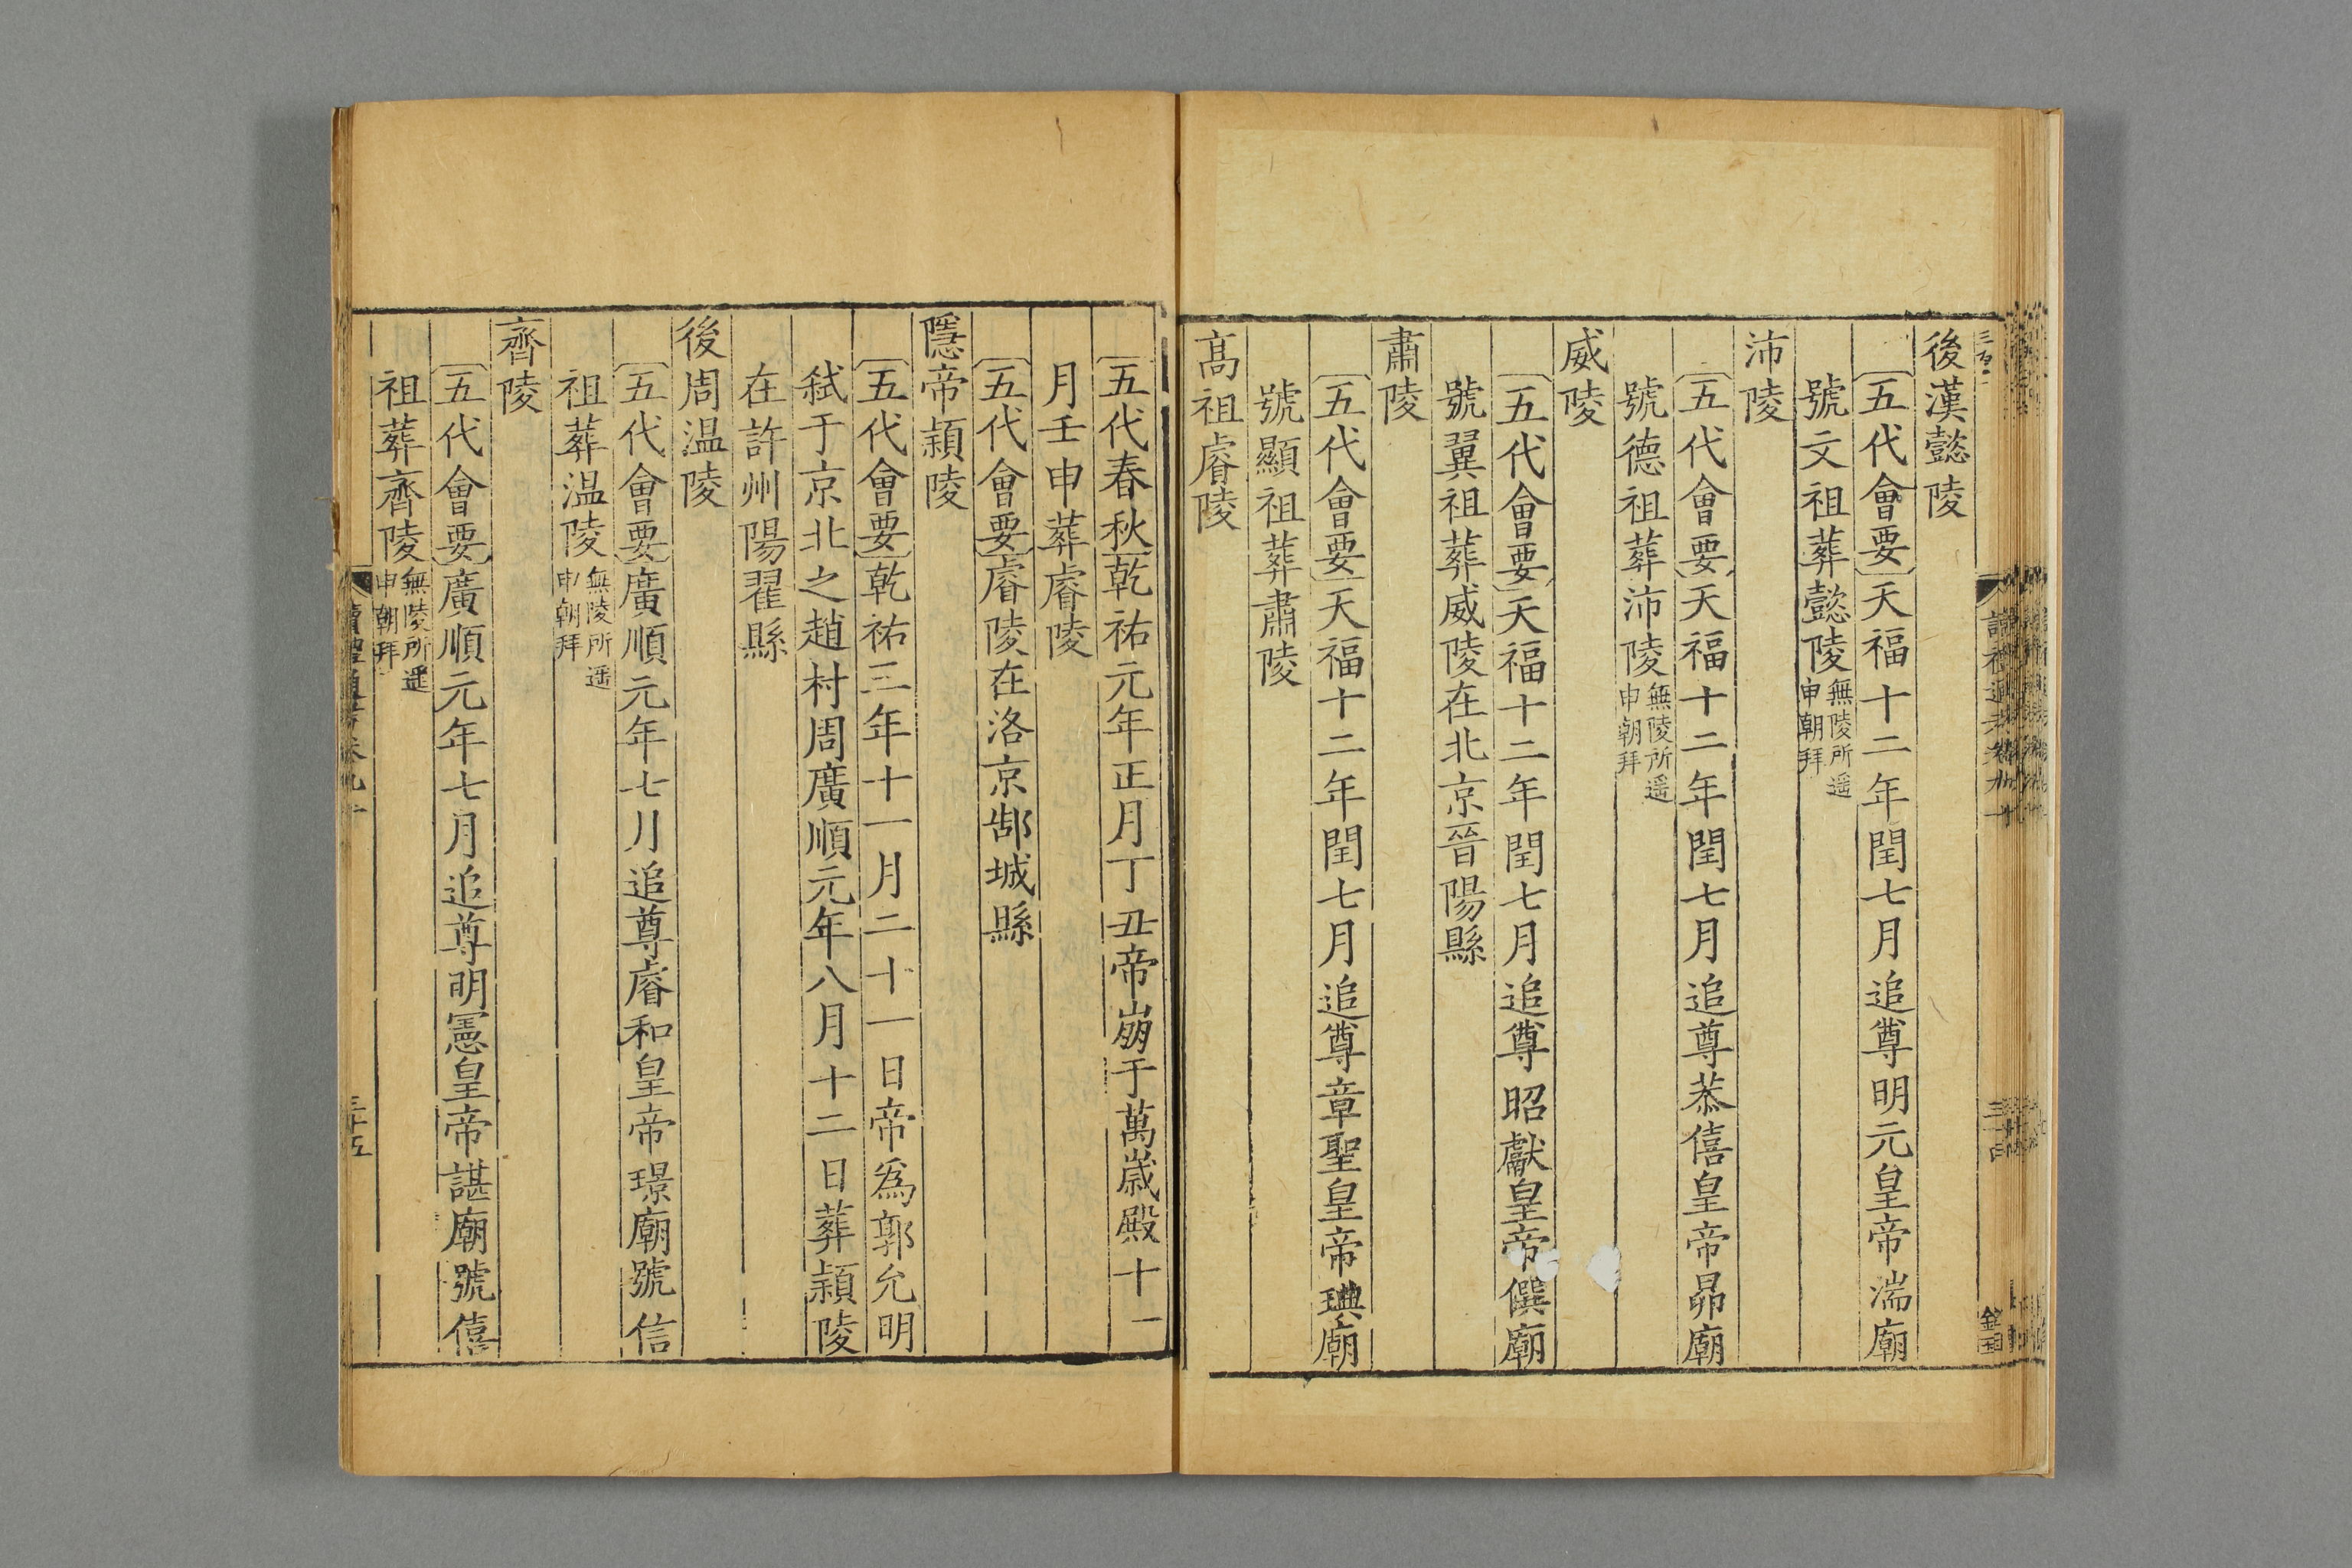 後漢懿陵
〔五代會要〕天福十二年閏七月追尊明元皇帝湍廟
號文祖葬懿陵無陵所遥
申朝拜
沛陵
〔五代會要〕天福十二年閏七月追尊恭僖皇帝昴廟
號德祖葬沛陵無陵所遥
申朝拜
威陵
〔五代會要〕天福十二年閏七月追尊昭獻皇帝僎廟
號翼祖葬威陵在北京晉陽縣
肅陵
〔五代會要〕天福十二年閏七月追尊章聖皇帝琠廟
號顯祖葬肅陵
高祖睿陵
〔五代春秋〕乾祐元年正月丁丑帝崩于萬歲殿十一
月壬申葬睿陵
〔五代會要〕睿陵在洛京郜城縣
隱帝潁陵
〔五代會要〕乾祐三年十一月二十一日帝爲郭允明
弑于京北之趙村周廣順元年八月十二日葬潁陵
在許州陽翟縣
後周温陵
〔五代會要〕廣順元年七月追尊睿和皇帝璟廟號信
祖葬温陵無陵所遥
申朝拜
齊陵
〔五代會要〕廣順元年七月追尊明憲皇帝諶廟號僖
祖葬齊陵無陵所遥
申朝拜